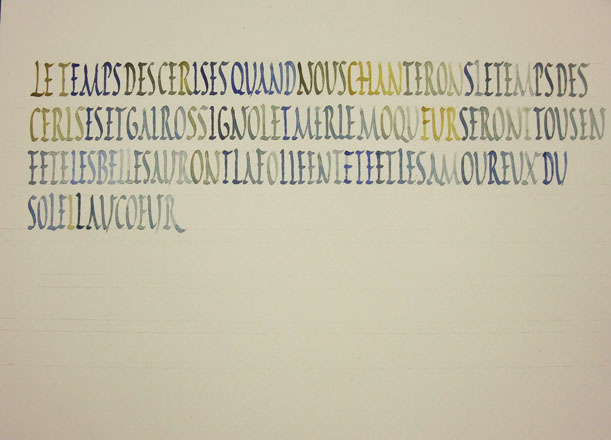 LE TEMPS DES CERISES QUAND NOUS CHANTERONS LE TEMPS DES
CERISES ET GAI ROSSIGNOL ET MERLE MOQUEUR SERONT TOUS EN
FETE LES BELLES AURONT LA FOLIE EN TETE ET LES AMOUREUX DU
SOLEIL AU COEUR